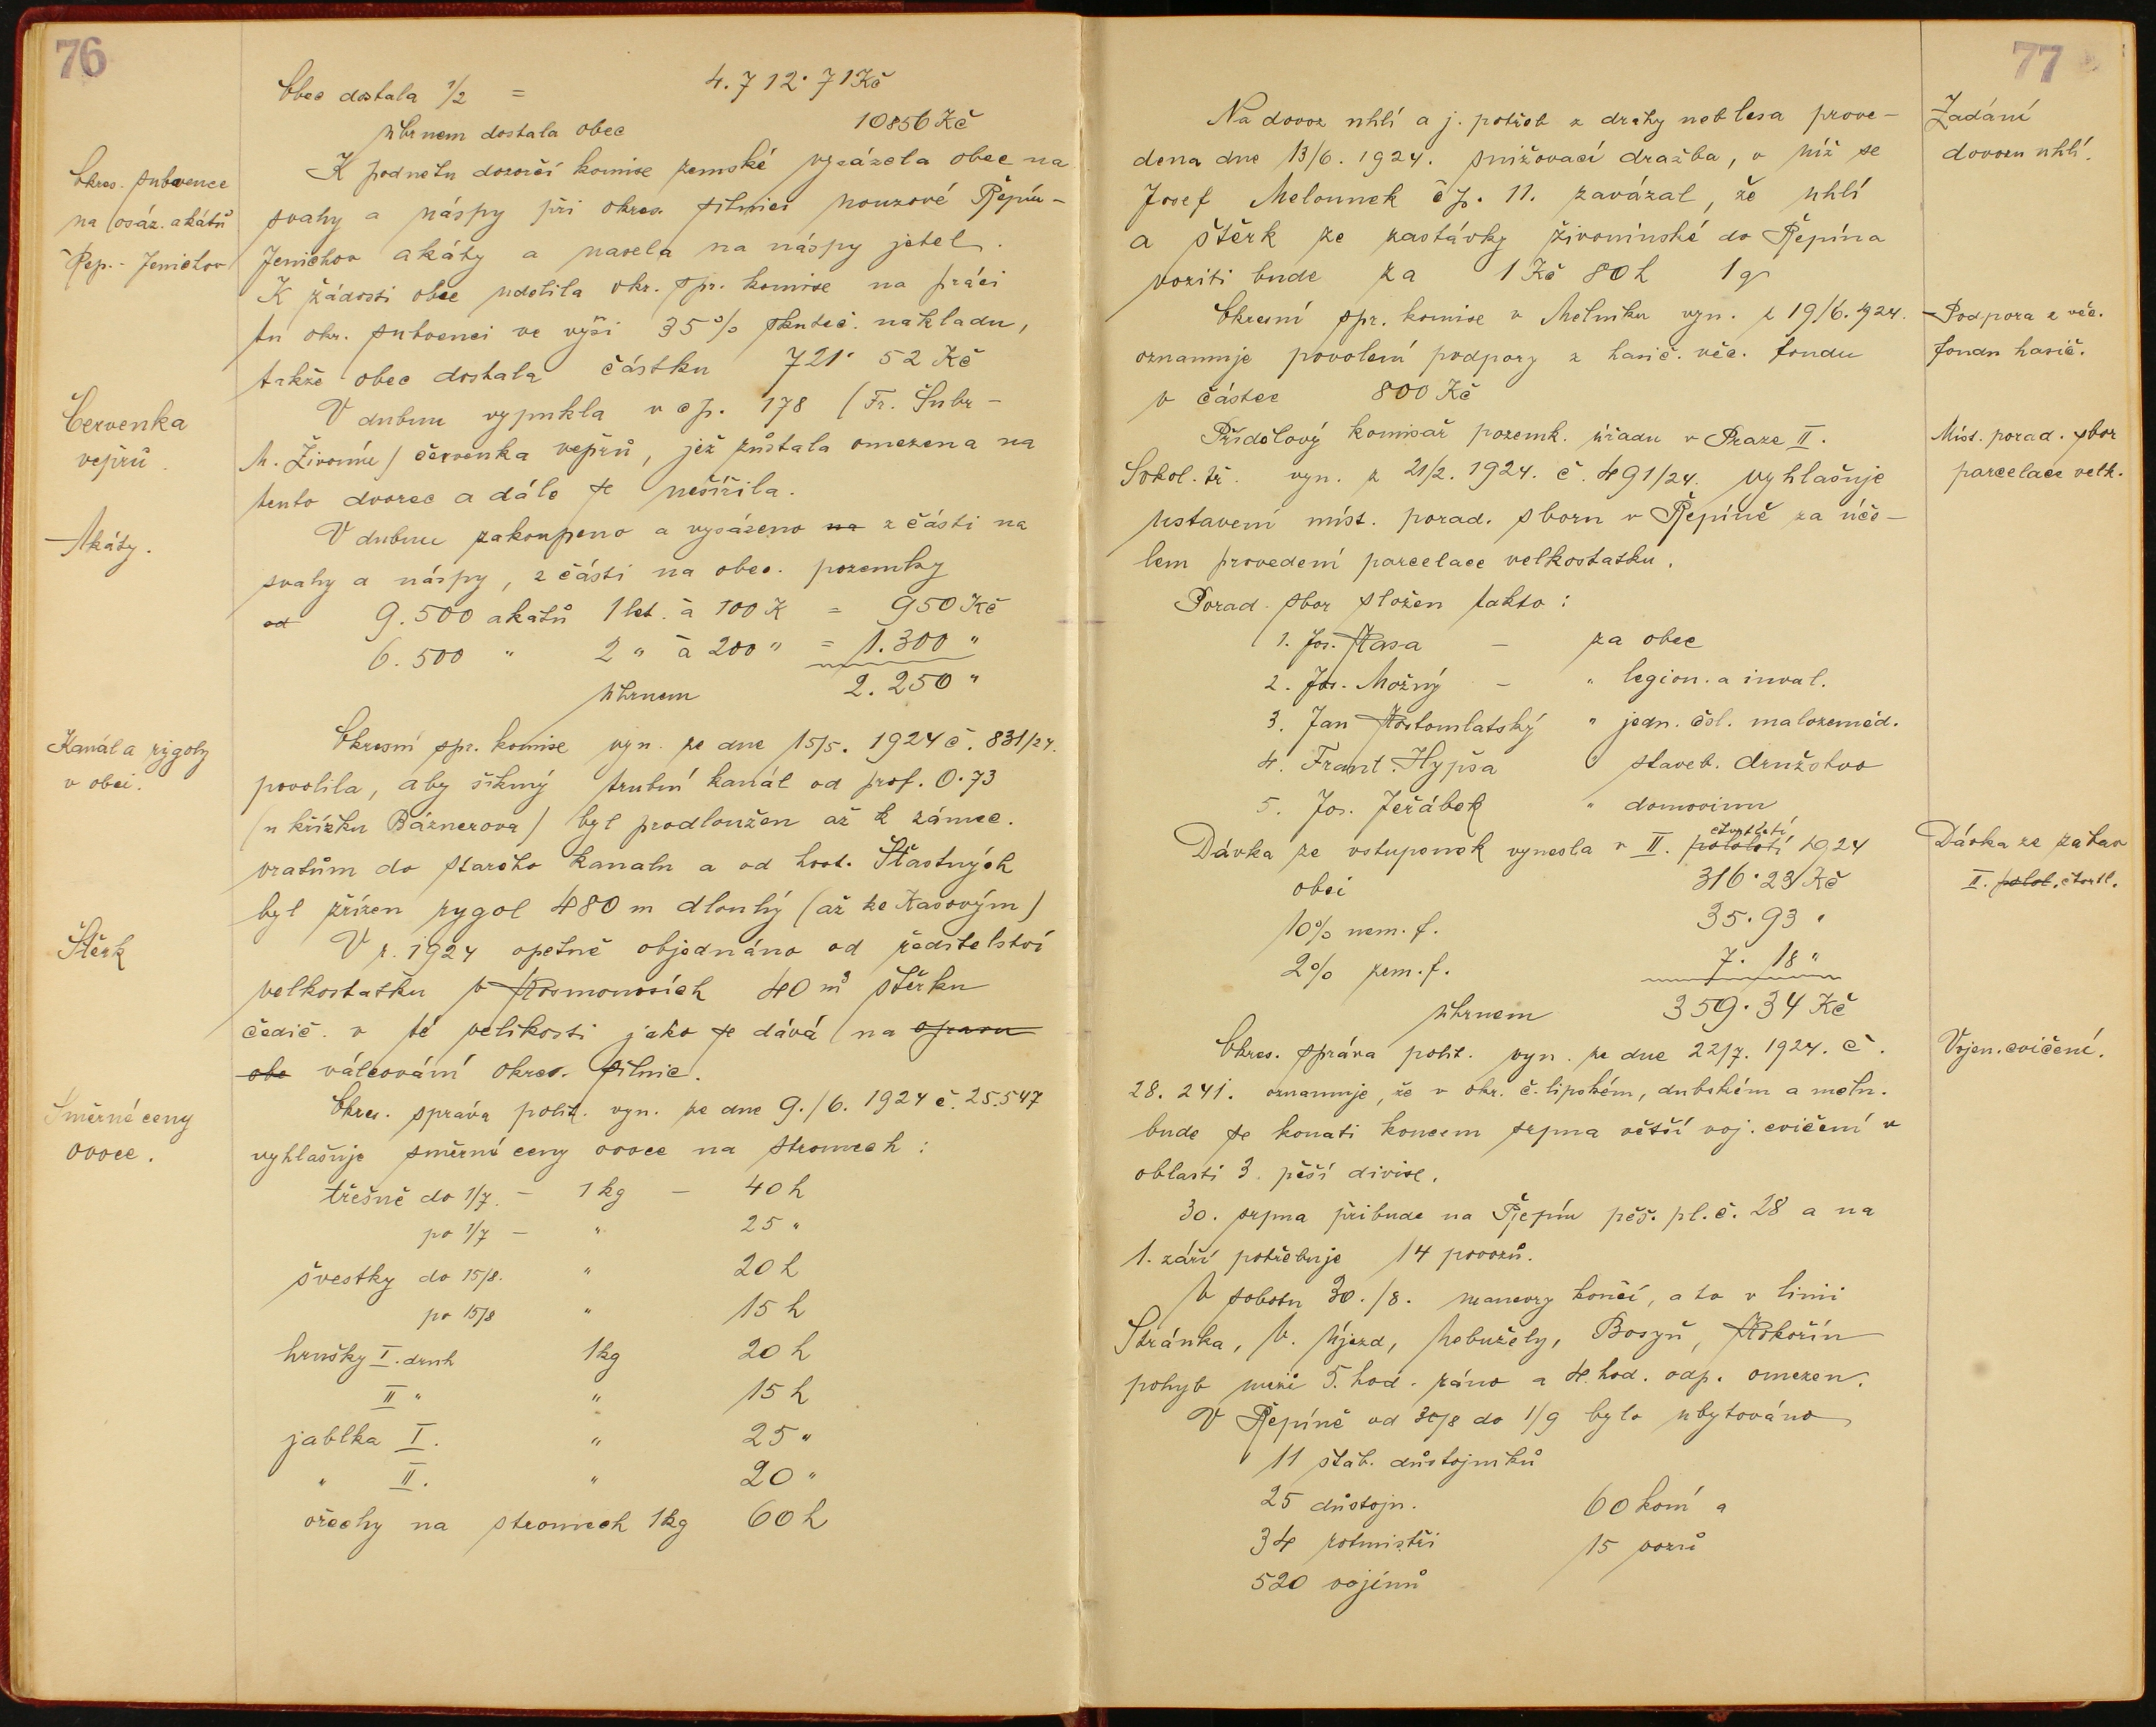 76
Obec dostala 1/2 = 4.712·71 Kč
úhrnem dostala obec 10856 Kč
Okres. subvence
na osáz. akátů
Řep.- Jenichov
K podnětu dozorčí komise zemské vysázela obec na
svahy a náspy při okres. silnici nouzové Řepín-
Jenichov akáty a nasela na náspy jetel.
K žádosti obce udělila okr. spr. komise na práci
tu okr. subvenci ve výši 35% skuteč. nákladu,
takže obec dostala částku 721·52 Kč
Červenka
vepřů.
V dubnu vypukla v čp. 178 (Fr. Šubr-
M. Živonín) červenka vepřů, jež zůstala omezena na
tento dvorec a dále se nešířila.
Akáty.
V dubnu zakoupeno a vysázeno na z části na
svahy a náspy, z části na obec. pozemky
od 9.500 akátů 1 let. à 100 K = 950 Kč
6.500 " 2 " à 200 " = 1.300 "
úhrnem 2.250 "
Kanál a rygoly
v obci.
Okresní spr. komise vyn. ze dne 15/5. 1924 č. 831/24.
povolila, aby šikmý trubní kanál od prof. 0·73
(u křížku Báznerova) byl prodloužen až k zámec.
vratům do starého kanálu a od host. Šťastných
byl zřízen rygol 480 m dlouhý (až ke Kasovým)
Štěrk
V r. 1924 opětně objednáno od ředitelství
velkostatku v Kosmonosích 40 m³ štěrku
čedič. v té velikosti jako se dává na opravu
obe válcování okres. silnic.
Směrné ceny
ovoce.
Okres. správa polit. vyn. ze dne 9./6. 1924 č. 25.547
vyhlašuje směrné ceny ovoce na stromech:
třešně do 1/7. - 1 kg - 40 h
po 1/7 - " 25 "
švestky do 15/8. " 20 h
po 15/8 " 15 h
hrušky I. druh 1kg 20 h
II " " 15 h
jablka I. " 25 "
" II. " 20 "
ořechy na stromech 1kg 60 h
77
Zadání
dovozu uhlí.
Na dovoz uhlí a j. potřeb z dráhy neb lesa prove-
dena dne 13/6. 1924. snižovací dražba, v níž se
Josef Melounek čp. 11. zavázal, že uhlí
a štěrk ze zastávky živonínské do Řepína
voziti bude za 1 Kč 80 h 1 q
Podpora z věč.
fondu hasič.
Okresní spr. komise v Mělníku vyn. z 19/6. 1924.
oznamuje povolení podpory z hasič. věč. fondu
v částce 800 Kč
Míst. porad. sbor
parcelace velk.
Přídělový komisař pozemk. úřadu v Praze II.
Sokol. tř. vyn. z 21/2. 1924. č. 491/24. vyhlašuje
ustavení míst. porad. sboru v Řepíně za úče-
lem provedení parcelace velkostatku.
Porad. sbor složen takto:
1. Jos. Kasa - za obec
2. Jos. Možný - " legion. a inval.
3. Jan Kostomlatský " jedn. čsl. malozeměd.
4. Frant. Hypša " staveb. družstvo
5. Jos. Jeřábek " domovinu
Dávka ze zábav
II. polol. čtvrtl.
čtvrtletí
Dávka ze vstupenek vynesla v II. pololetí 1924
obci 316·23 Kč
10% nem. f. 35·93 "
2% zem. f. 7·18 "
úhrnem 359·34 Kč
Vojen. cvičení.
Okres. správa polit. vyn. ze dne 22/7. 1924. č.
28.241. oznamuje, že v okr. č. lipském, dubském a měln.
bude se konati koncem srpna větší voj. cvičení v
oblasti 3. pěší divise.
30. srpna přibude na Řepín pěš. pl. č. 28 a na
1. září potřebuje 14 povozů.
V sobotu 30./8. manevry končí, a to v linii
Stránka, V. Újezd, Nebužely, Bosyň, Kokořín
pohyb mezi 5. hod. ráno a 4. hod. odp. omezen.
V Řepíně od 30/8 do 1/9 bylo ubytováno
11 štáb. důstojníků
25 důstojn. 60 koní a
34 rotmistři 15 vozů
520 vojínů